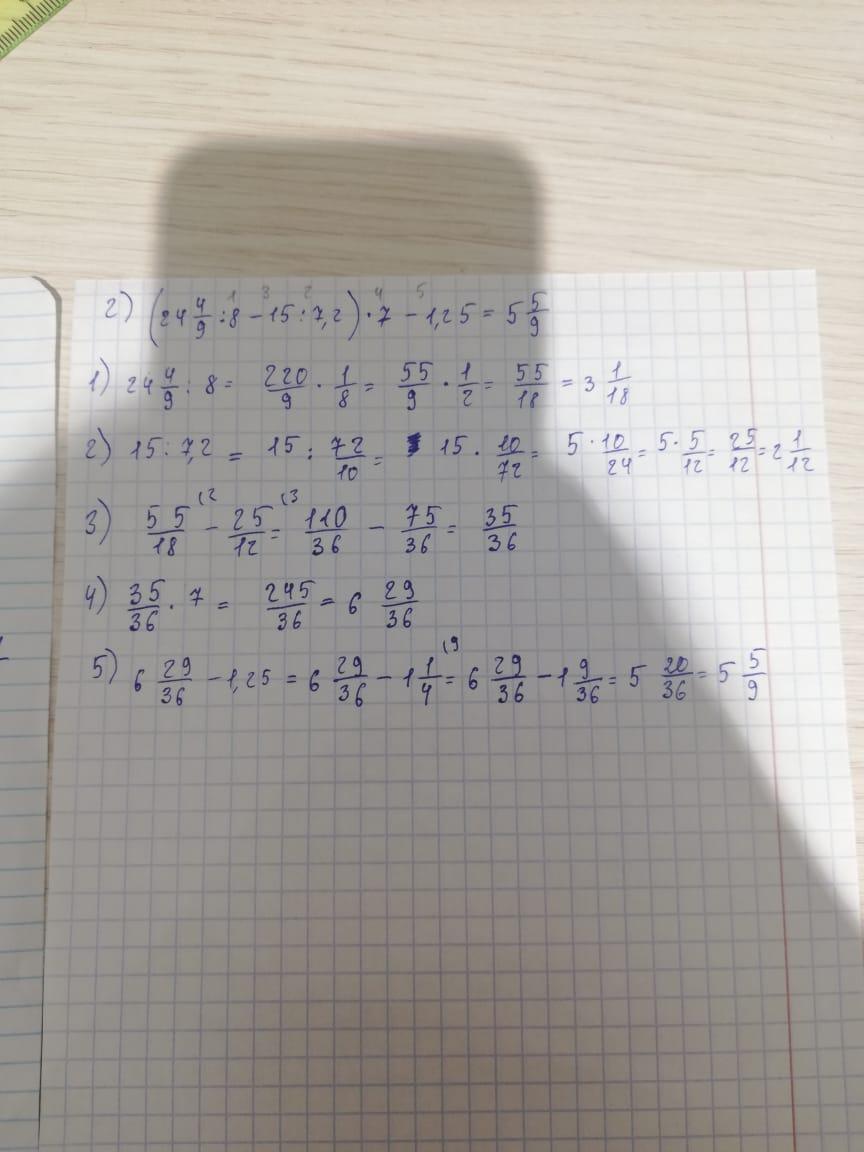 2) (24 4/9 : 8 - 15 : 7,2) · 7 - 1,25 = 5 5/9
1) 24 4/9 : 8 = 220/9 · 1/8 = 55/9 · 1/2 = 55/18 = 3 1/18
2) 15 : 7,2 = 15 : 72/10 = 15 · 10/72 = 5 · 10/24 = 5 · 5/12 = 25/12 = 2 1/12
3) 55/18 (2 - 25/12 (3 = 110/36 - 75/36 = 35/36
4) 35/36 · 7 = 245/36 = 6 29/36
5) 6 29/36 - 1,25 = 6 29/36 - 1 1/4 (9 = 6 29/36 - 1 9/36 = 5 20/36 = 5 5/9